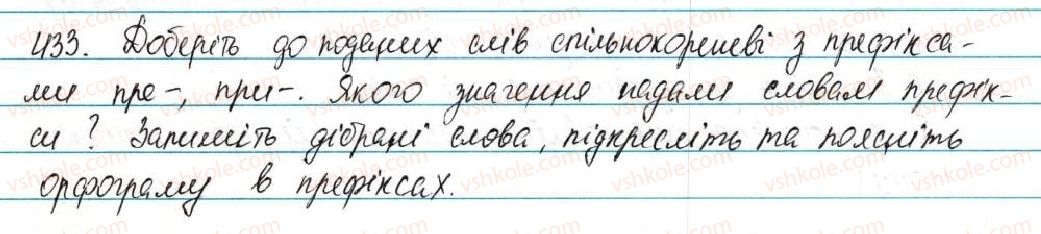 433. Доберіть до поданих слів спільнокореневі з префікса-
ми пре-, при-. Якого значення надали словам префік-
си? Запишіть дібрані слова, підкресліть та поясніть
орфограму в префіксах.